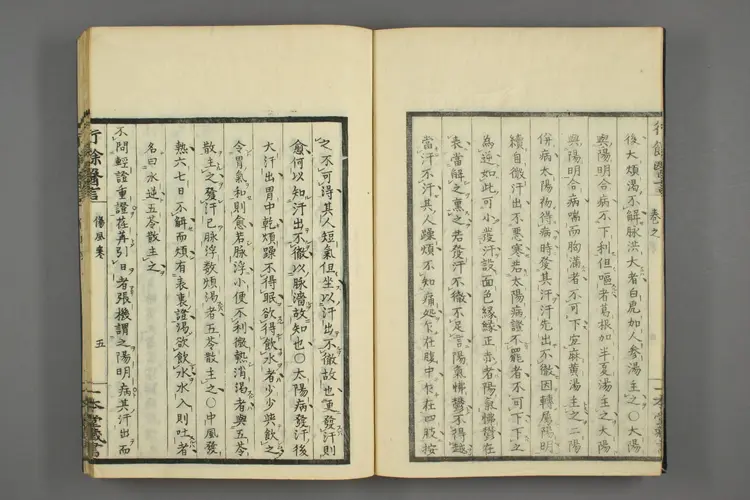 行餘醫言 卷之 一本堂藏
後大煩渴不解脉洪大者白虎加人參湯主之○太陽
與陽明合病不下利但嘔者葛根加半夏湯主之太陽
與陽明合病喘而胸滿者不可下宜麻黃湯主之二陽
併病太陽初得病時發其汗汗先出不徹因轉屬陽明
續自微汗出不惡寒若太陽病證不罷者不可下下之
為逆如此可小發汗設面色緣緣正赤者陽氣怫鬱在
表當解之熏之若發汗不徹不足言陽氣怫鬱不得越
當汗不汗其人躁煩不知痛処乍在腹中乍在四肢按
之不可得其人短氣但坐以汗出不徹故也更發汗則
愈何以知汗出不徹以脉濇故知也○太陽病發汗後
大汗出胃中乾煩躁不得眠欲得飲水者少少與飲之
令胃氣和則愈若脉浮小便不利微熱消渴者與五苓
散主之發汗已脉浮數煩渴者五苓散主之○中風發
熱六七日不解而煩有表裏證渴欲飲水水入則吐者
名曰水逆五苓散主之
不問輕證重證荏苒引日者張機謂之陽明病其汗出而
行餘醫言 傷風寒 五 一本堂藏書